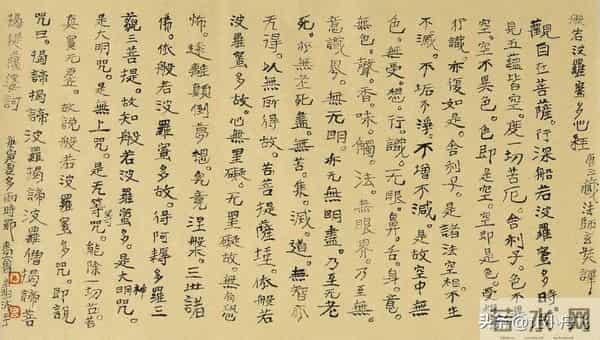 般若波羅蜜多心経 唐三藏法師玄奘譯
觀自在菩薩。行深般若波羅蜜多時
見五蘊皆空。度一切苦厄。舍利子。色不
空。空不異色。色即是空。空即是色。受
行識。亦復如是。舍利子。是諸法空相。不生
不滅。不垢不淨。不增不減。是故空中。無
色。無受。想。行。識。無眼。鼻。舌。身。意。
無色。聲。香。味。觸。法。無眼界。乃至無
意識界。無無明。亦無無明盡。乃至無老
死。亦無老死盡。無苦。集。滅。道。無智亦
無得。以無所得故。菩提薩埵。依般若
波羅蜜多故。心無罣礙。無罣礙故。無有恐
怖。遠離顛倒夢想。究竟涅槃。三世諸
佛。依般若波羅蜜多故。得阿耨多羅三
藐三菩提。故知般若波羅蜜多。是大神咒。
是大明咒。是無上咒。是無等等咒。能除一切苦
真實不虛。故說般若波羅蜜多咒。即說
咒曰。揭諦揭諦波羅揭諦波羅僧揭諦菩
揭提薩婆訶
若水网